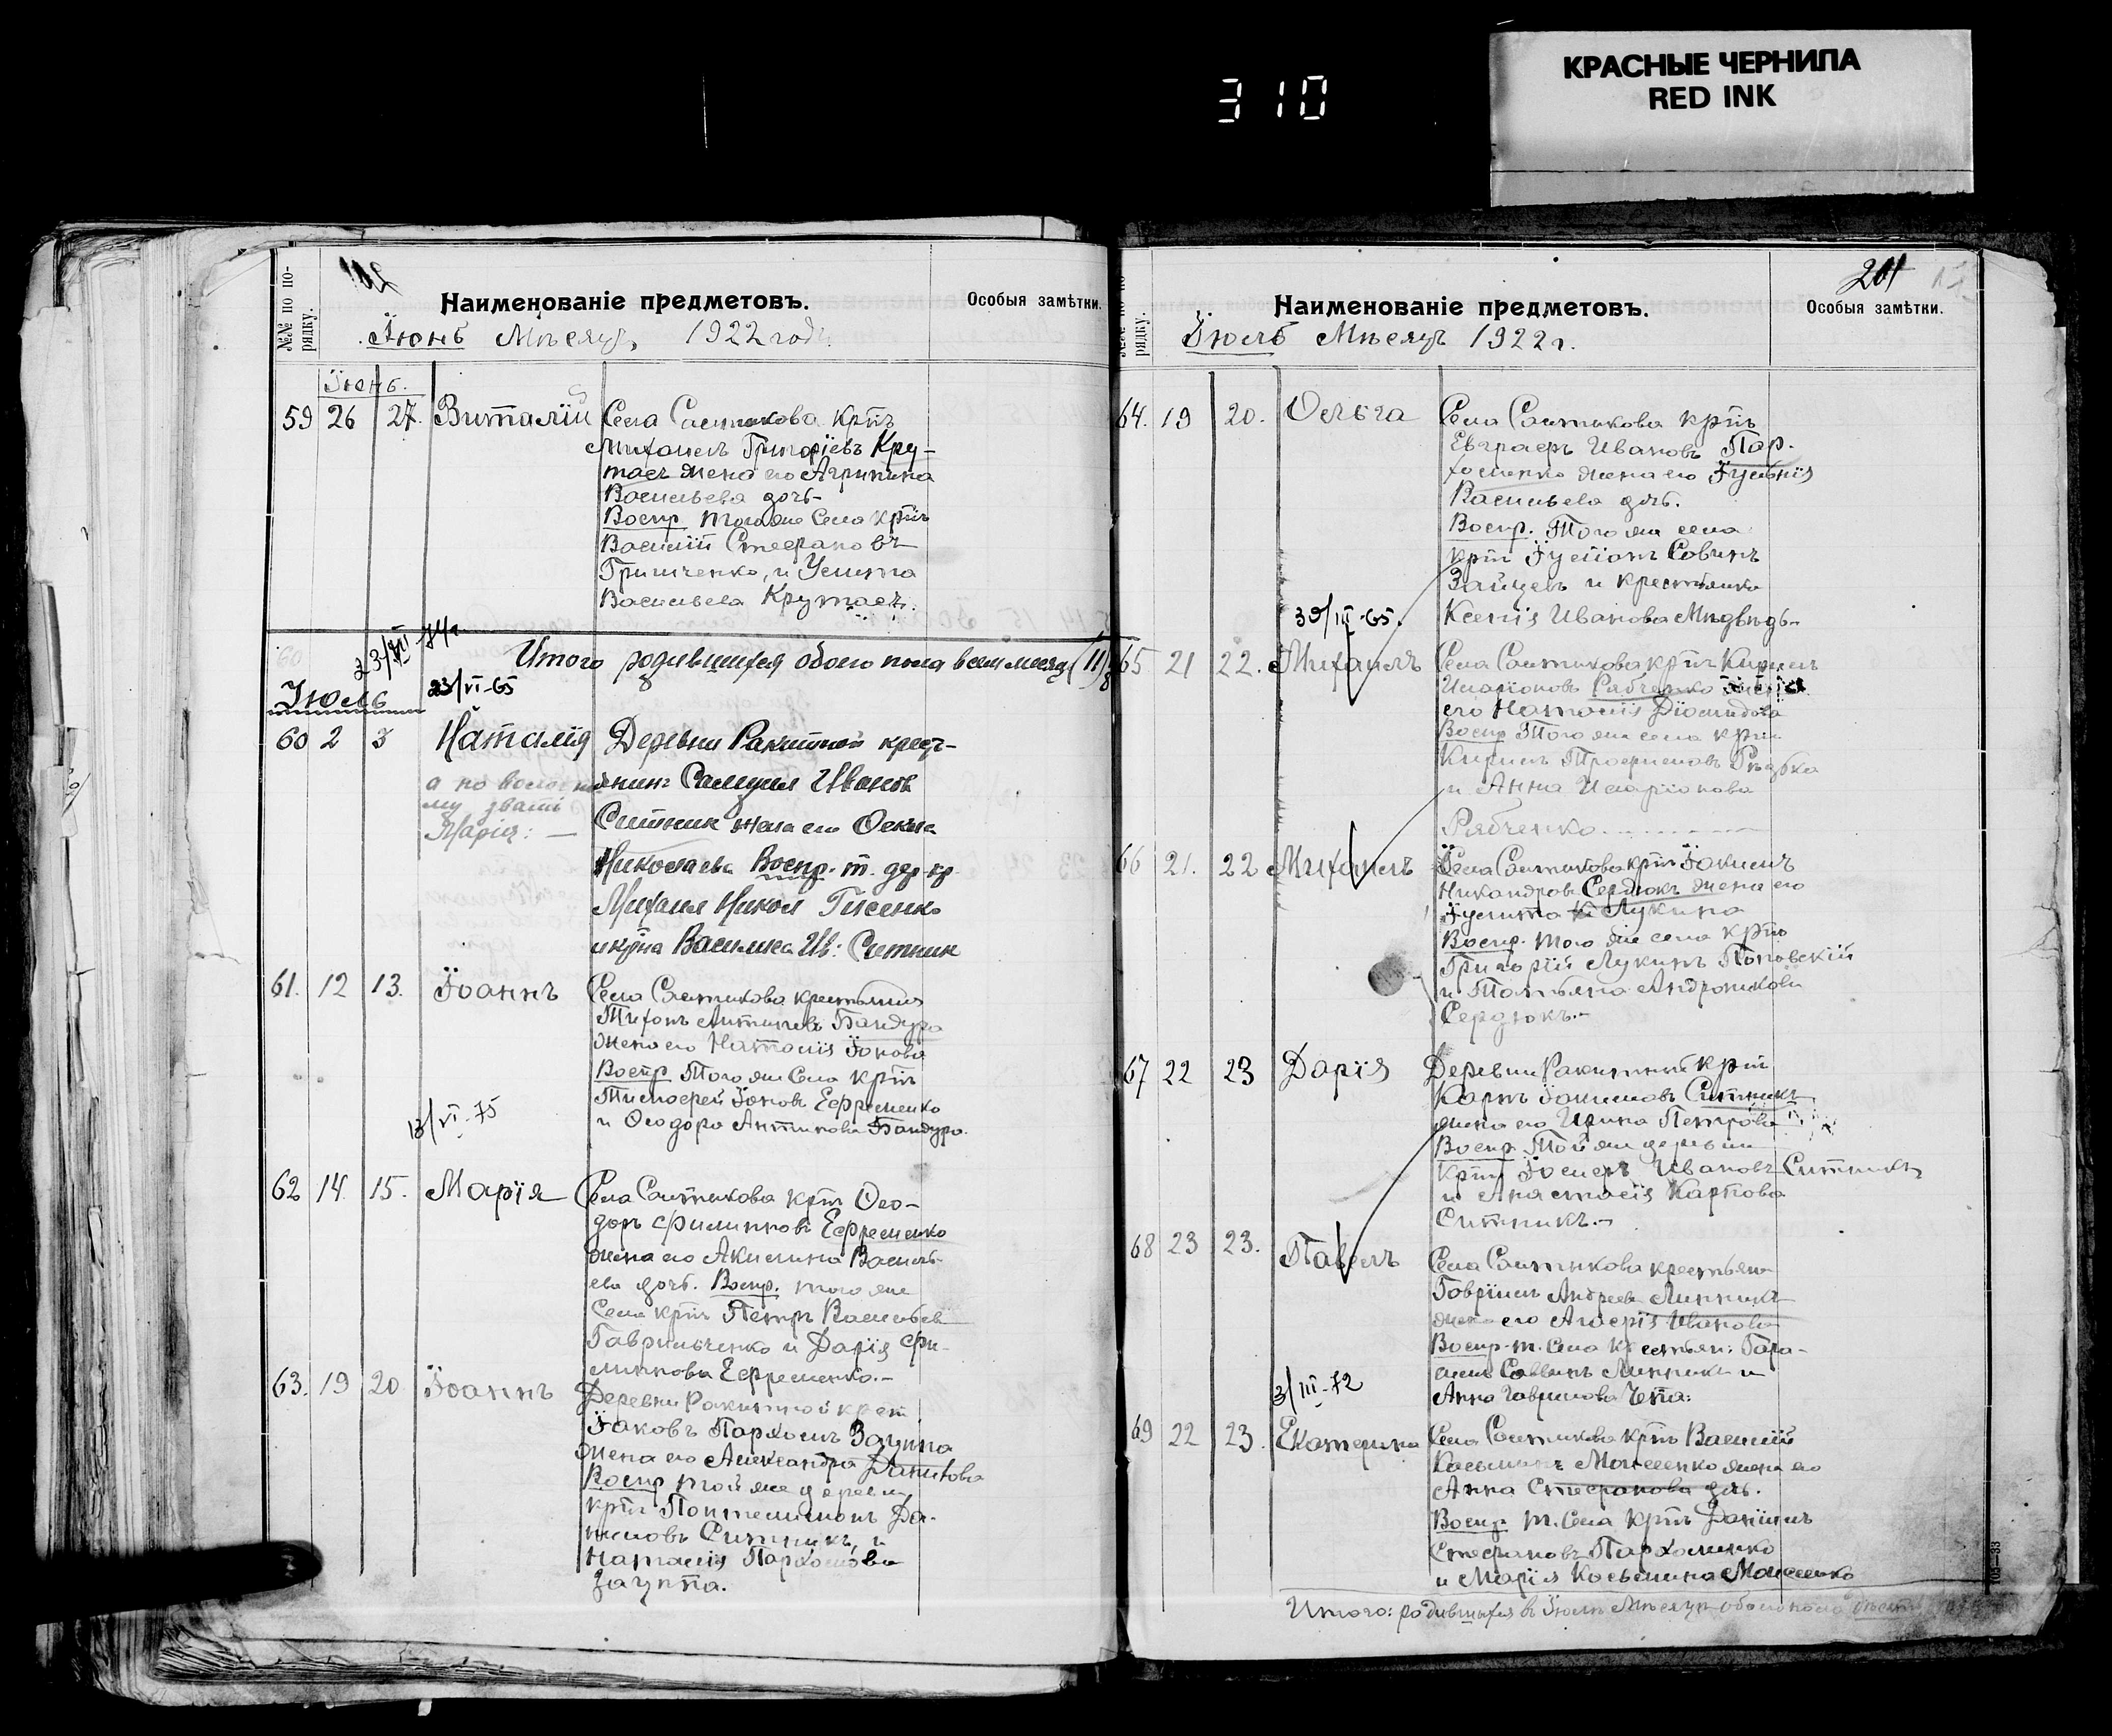 КРАСНЫЕ ЧЕРНИЛА
RED INK
310
№№ по по-
рядку.
Наименованіе предметовъ.
Особыя замѣтки.
Іюнь Мѣсяцъ, 1922 года
Іюнь.
59 26 27. Виталій Села Салтыкова крт҃ъ
Михаилъ Григоріевъ Кру-
таѣ жена его Агрипина
Васильева дочь-
Воспр. того же Села крт҃ъ
Василій Стефановъ
Гришченко, и Улита
Васильева Крутаѣ.
23/VII-74г.
Итого родившихся обоего пола всем месяц (11)
Іюль
23/VI-65
60 2 3 Наталія Деревни Ракитной крест-
янинъ Самуил Иванов
Ситник жена его Фекла
Николаева Воспр. т. дер. кр.
Михаил Никол Гисенко
и кр҃на Василиса Ив: Ситник
а по
му звать
Марія: —
61. 12 13. Іоаннъ Села Салтыкова крестьянин
Тихонъ Антиповъ Бандура
жена его Наталія Іонова
Воспр Того же Села крт҃ъ
Тимофей Іоновъ Ефременко
и Феодора Антипова Бандура.
13/VI-75
62 14 15. Марія Села Салтыкова крт҃ъ Фео-
доръ Филиповъ Ефременко
жена его Акилина Василь-
ева дочь. Воспр. того же
Села крт҃ъ Петръ Васильев
Гаврильченко и Дарія Фи-
липова Ефременко.-
63. 19 20 Іоаннъ Деревни Ракитной крест
Іаковъ Пархом Заупна
жена его Александра Данилова
Воспр той же деревни
крт҃ъ Понтелимонъ Да-
ниловъ Ситникъ, и
Наталія Пархомова
Заупна.
201
Наименованіе предметовъ.
Особыя замѣтки.
рядку.
Іюль Мѣсяцъ 1922 г.
64. 19 20. Ольга Села Салтыкова крт҃ъ
Евграфъ Ивановъ Пар-
хоменко жена его
Васильева дочь.
Воспр. Того же села
крт҃ъ Савинъ
Зайцевъ и крестьянка
Ксенія Иванова Мѣдвѣдь-
30/III-65.
65 21 22. Михаилъ Села Салтыкова крт҃ъ Кирилъ
Иларіоновъ Рябченко жена
его Наталія Діомидова
Воспр Того же села крт҃ъ
Кирилъ Трофимовъ
и Анна Иларіонова
Рябченко
66 21. 22 Михаилъ Села Салтыкова крт҃ъ Іакимъ
Никандровъ Сердюкъ жена его
Іулита Лукина
Воспр. того же села крт҃ъ
Григорій Лукинъ Поповскій
и Татьяна Андроникова
Сердюкъ.-
67 22 23 Дарія Деревни Ракитной крт҃ъ
Карпъ Іакимовъ Ситникъ
жена его Ирина Петрова
Воспр Той же деревни
крт҃ъ Іосифъ Ивановъ Ситникъ
и Анастасія Карпова
Ситникъ.-
68 23 23. Павелъ Села Салтыкова крестьян
Гавріилъ Андреев Линникъ
жена его Иванова
Воспр. т. Села крестьян: Гера-
сим Саввинъ Линникъ и
Анна Гаврилова
3/III-72
69 22 23. Екатерина Села Салтыкова крт҃ъ Василій
Косьминъ Моисеенко жена его
Анна Стефанова дочь.
Воспр т. Села крт҃ъ Даніилъ
Стефановъ Пархоменко
и Марія Косьмина Моисеенко
Итого: родившихся в Іюлѣ Мѣсяцѣ обоего пола десять